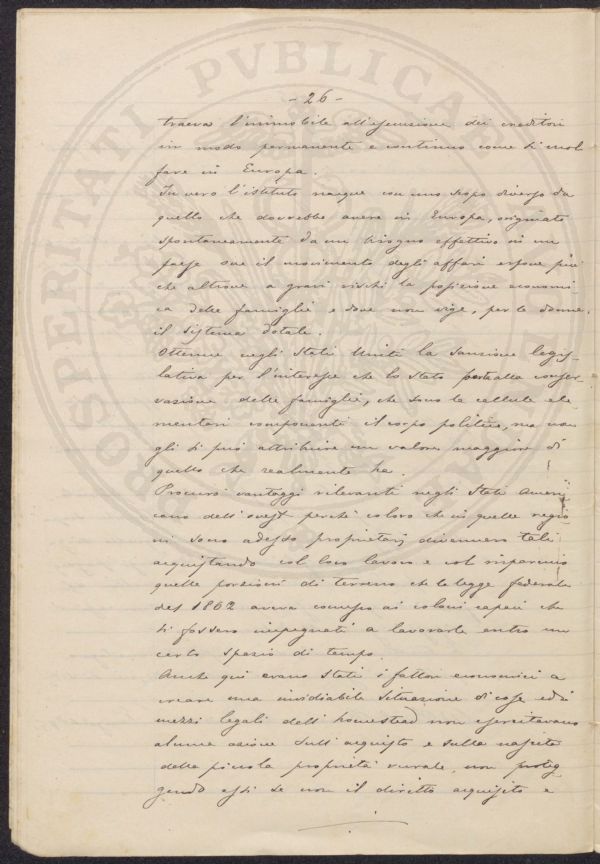 - 26 -
traeva l'immobile all'esecuzione dei creditori
in modo permanente e continuo come si vuol
fare in Europa.
In vero l'istituto nacque con uno scopo diverso da
quello che dovrebbe avere in Europa, originato
spontaneamente da un bisogno effettivo in un
paese ove il movimento degli affari espone più
che altrove a gravi rischi la posizione economi
ca delle famiglie e dove non vige, per le donne,
il sistema dotale.
Ottenne negli Stati Uniti la sanzione legis-
lativa per l'interesse che lo Stato porta alla conser-
vazione delle famiglie, che sono le cellule ele
mentari componenti il corpo politico, ma non
gli si può attribuire un valore maggiore di
quello che realmente ha.
Procurò vantaggi rilevanti negli Stati Ameri
cano dell'ovest perchè coloro che in quelle regio
ni sono adesso proprietarj divennero tali
acquistando col loro lavoro e col risparmio
quelle porzioni di terreno che la legge federale
del 1862 aveva concesso ai coloni capaci che
si fossero impegnati a lavorarle entro un
certo spazio di tempo.
Anche qui erano stati i fattori economici a
creare una invidiabile situazione di cose ed i
mezzi legali dell'homestead non esercitavano
alcuna azione sull'acquisto e sulla nascita
della piccola proprietà rurale, non proteg
gendo essi se non il diritto acquisito e
ROSPERITATI PVBLICAE